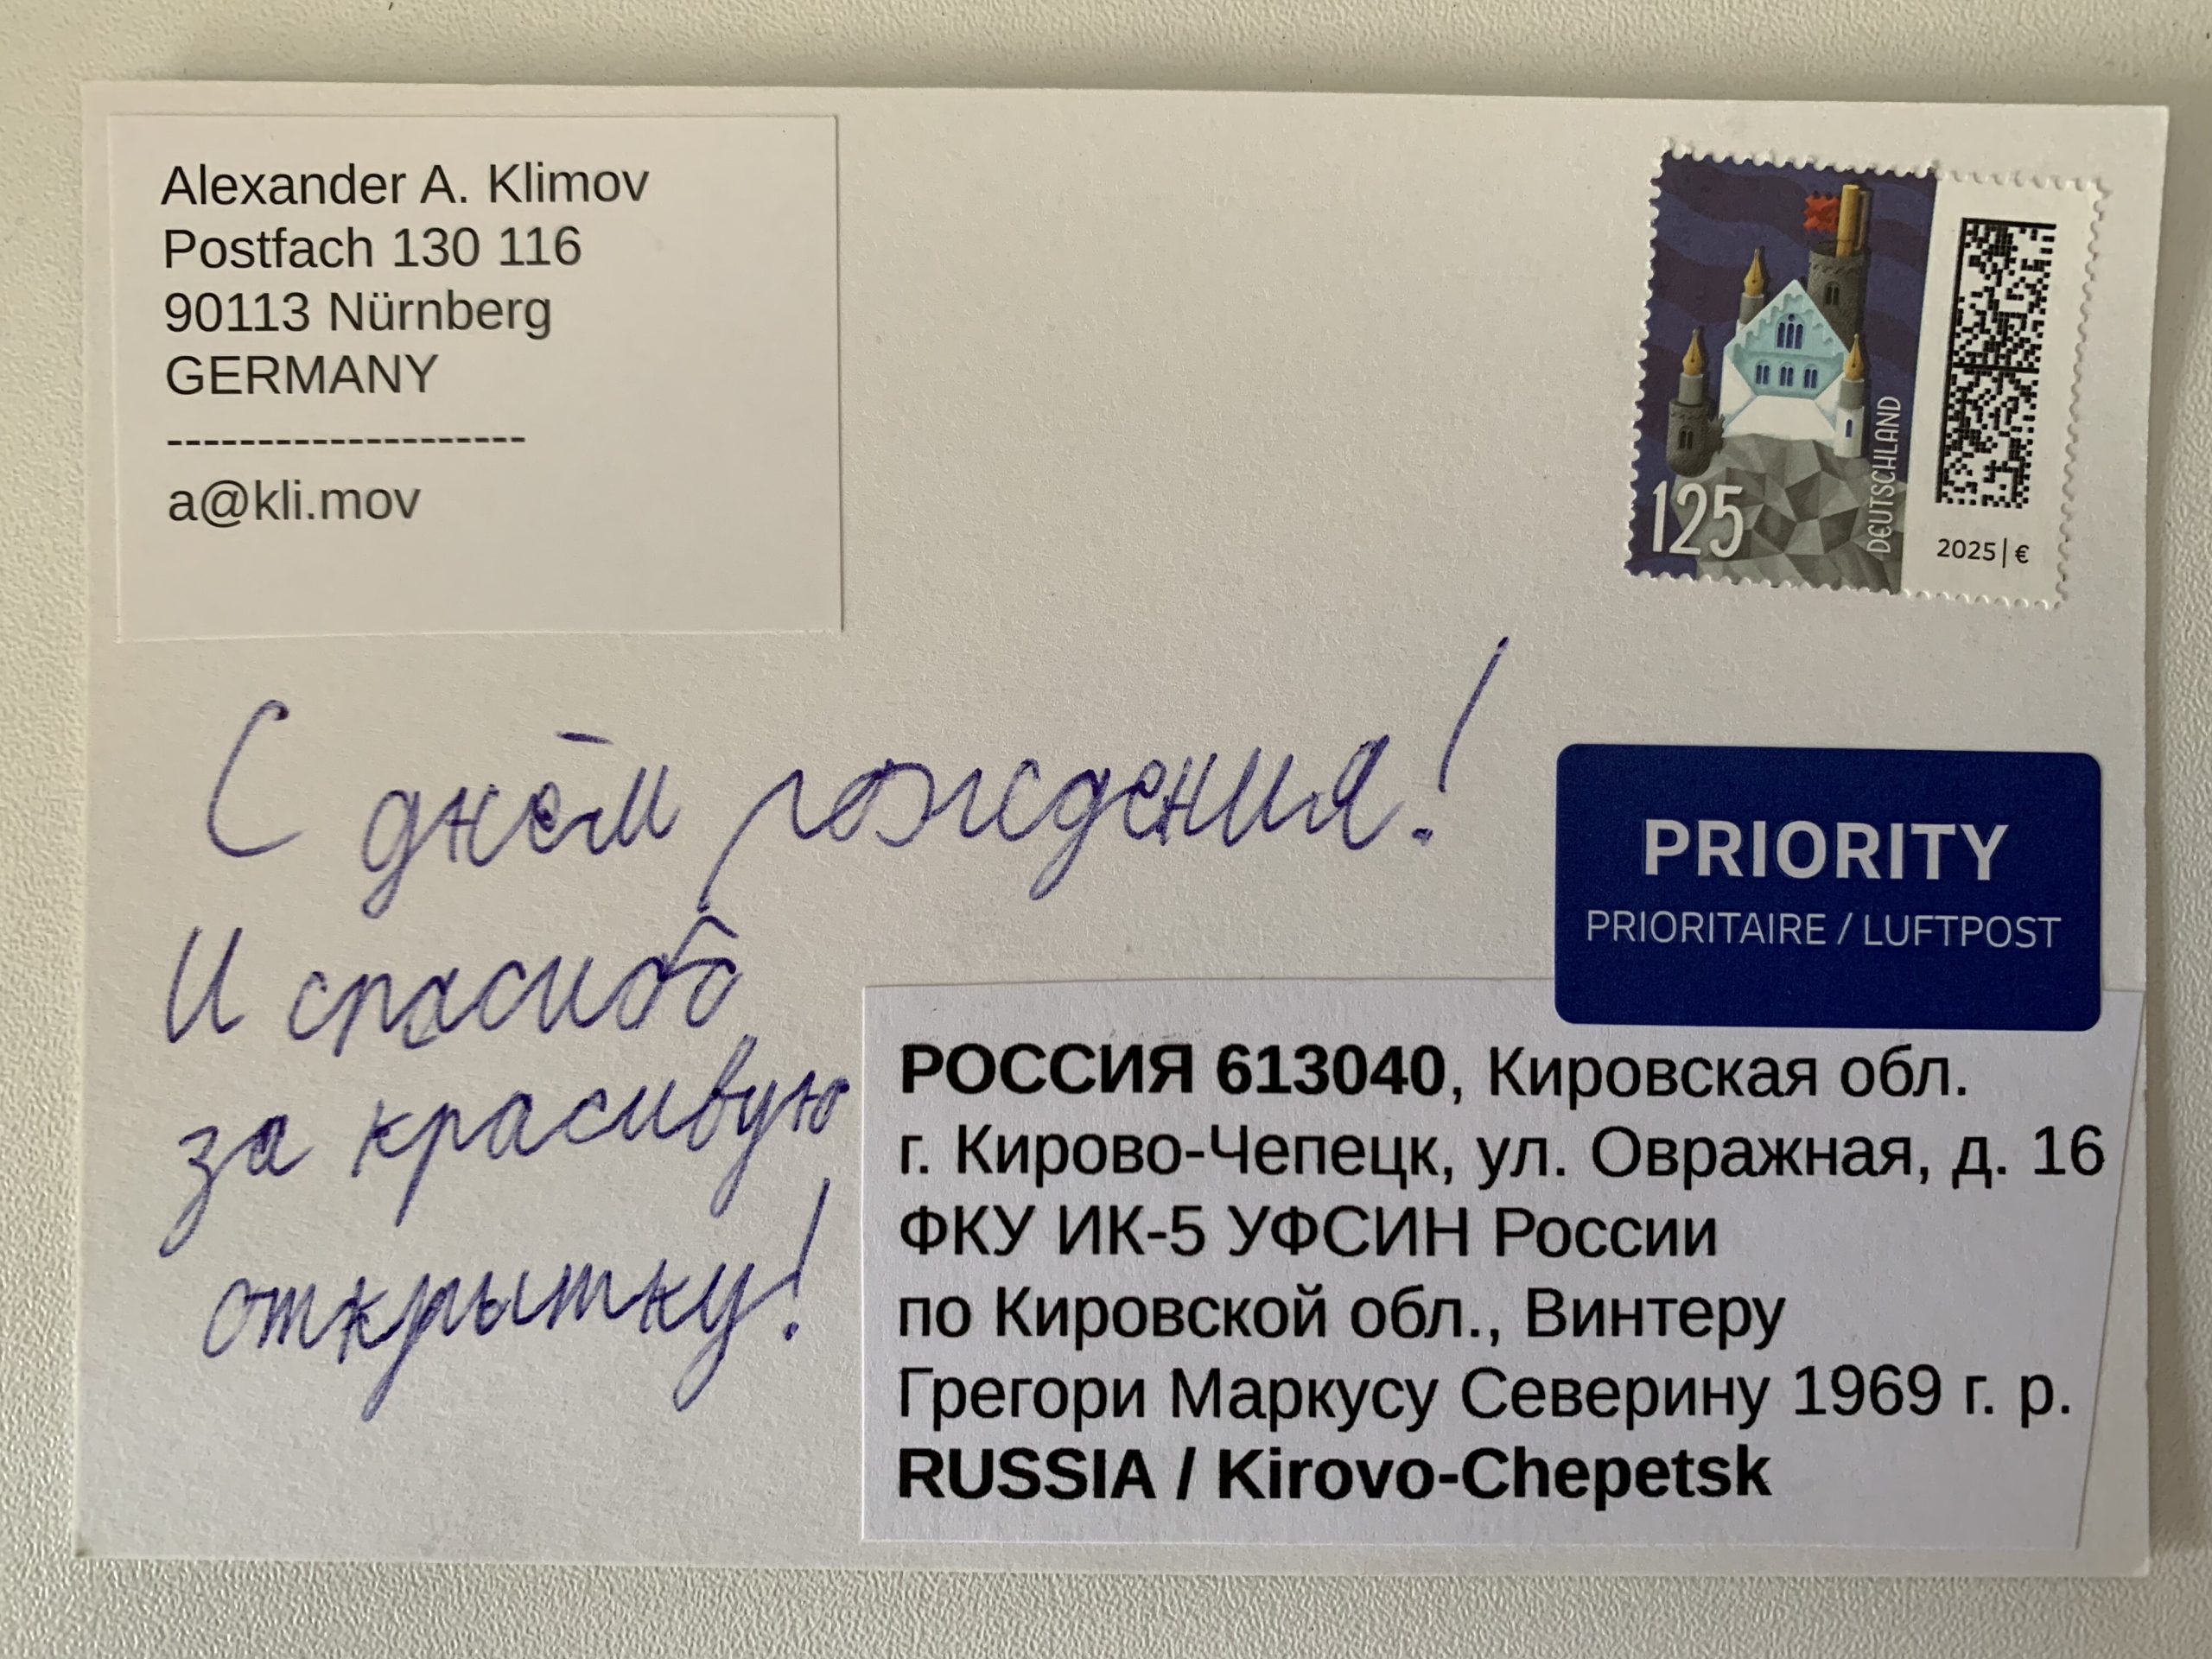 Alexander A. Klimov
Postfach 130 116
90113 Nürnberg
GERMANY
--------------------
a@kli.mov
125
DEUTSCHLAND
2025 | €
С днём рождения!
PRIORITY
PRIORITAIRE / LUFTPOST
И спасибо
за красивую
открытку!
РОССИЯ 613040, Кировская обл.
г. Кирово-Чепецк, ул. Овражная, д. 16
ФКУ ИК-5 УФСИН России
по Кировской обл., Винтеру
Грегори Маркусу Северину 1969 г. р.
RUSSIA / Kirovo-Chepetsk